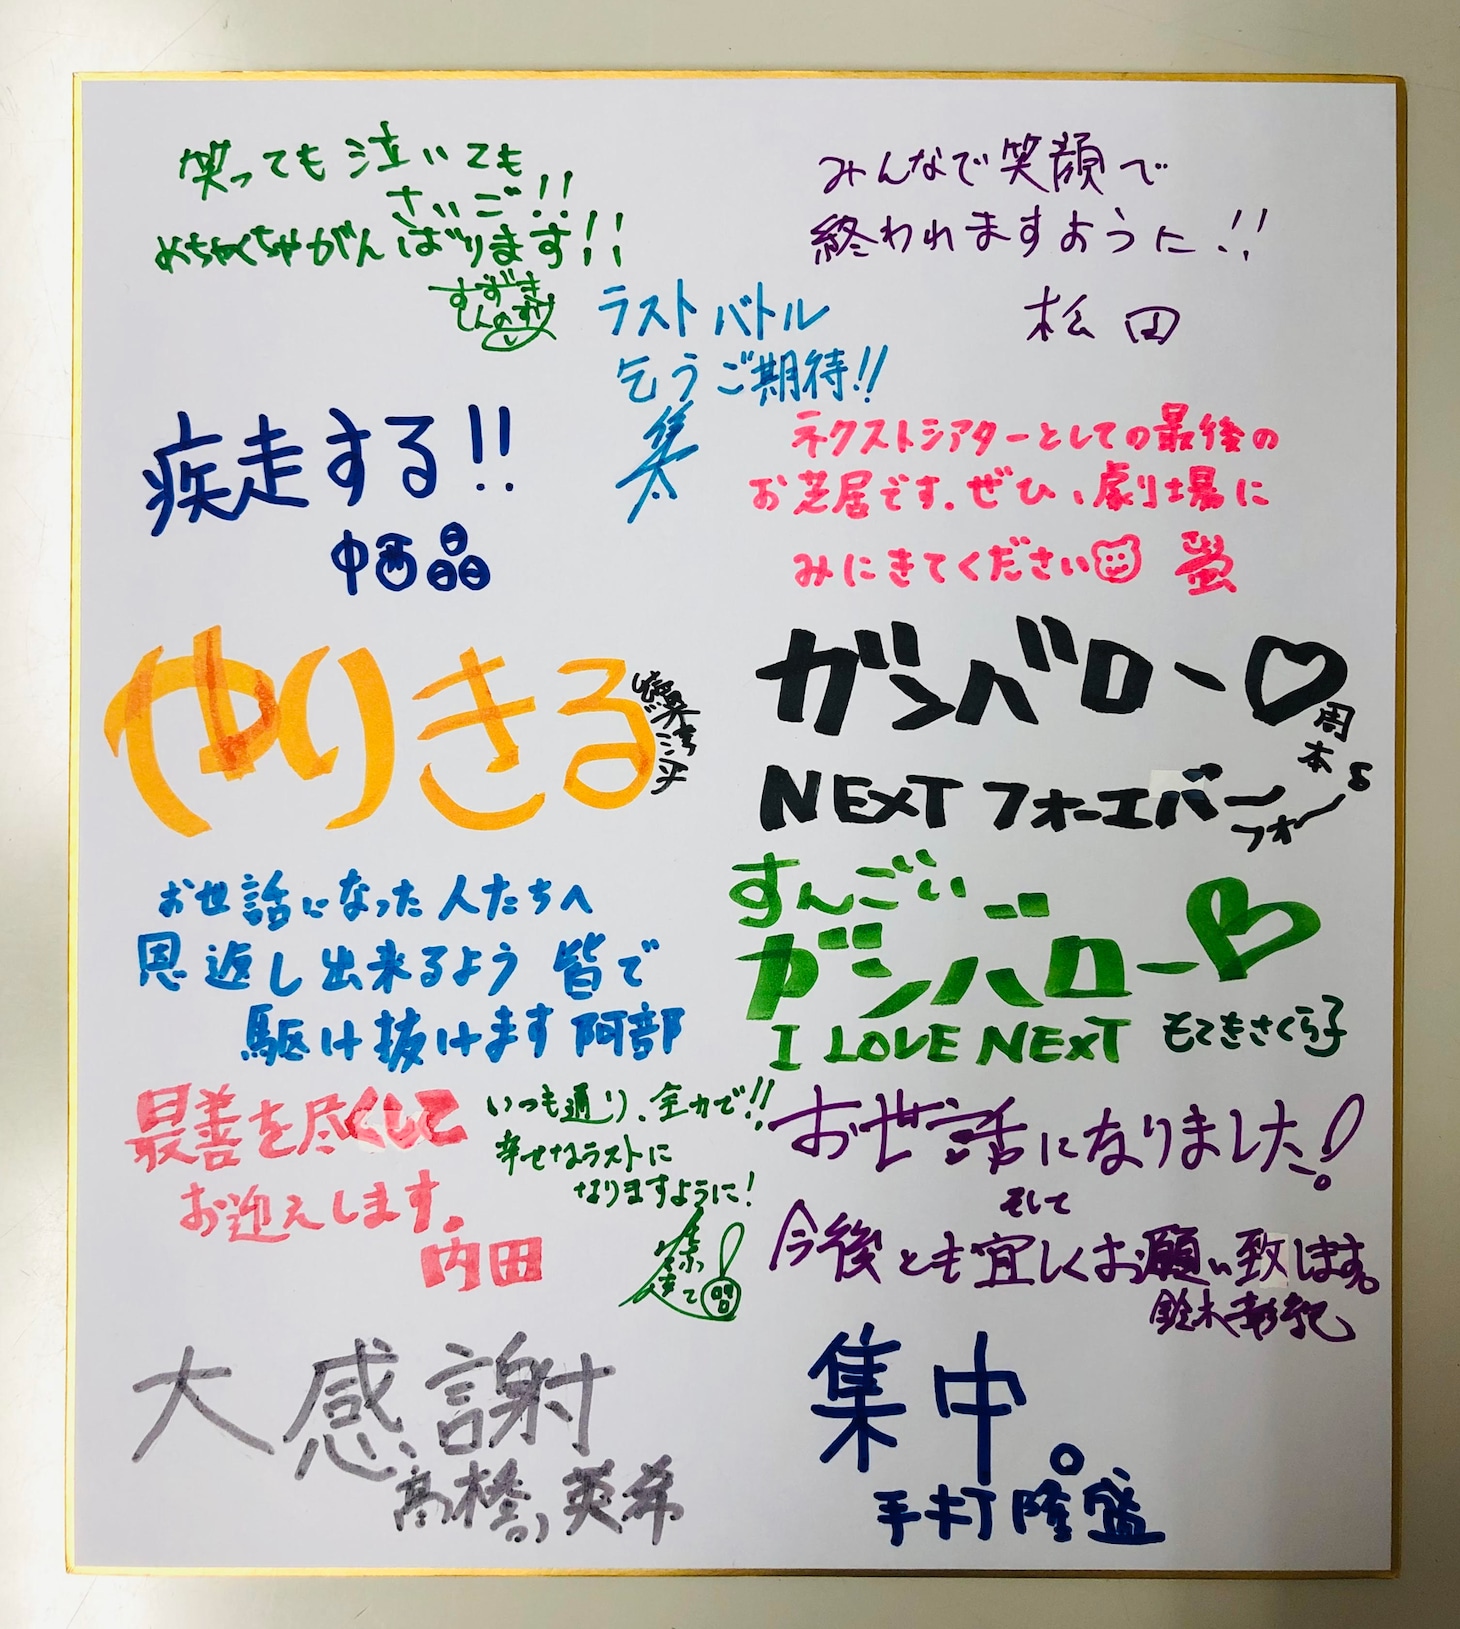 笑っても泣いても
さいご!!
めちゃくちゃがんばります!!
すずき
しんのすけ
みんなで笑顔で
終われますように!!
松田
ラストバトル
乞うご期待!!
隼太
疾走する!!
中西晶
ネクストシアターとしての最後の
お芝居です。ぜひ、劇場に
みにきてください
蛍
やりきる
続木淳平
ガンバロー♡
周本
NEXTフォーエバー
フォー
お世話になった人たちへ
恩返し出来るよう皆で
駆け抜けます 阿部
すんごい
ガンバロー♡
I LOVE NEXT
もてぎさくら子
最善を尽くして
お迎えします。
内田
いつも通り、全力で!!
幸せなラストに
なりますように!
お世話になりました!
そして
今後とも宜しくお願い致します。
鈴木彰紀
大感謝
髙橋英希
集中。
手打隆盛